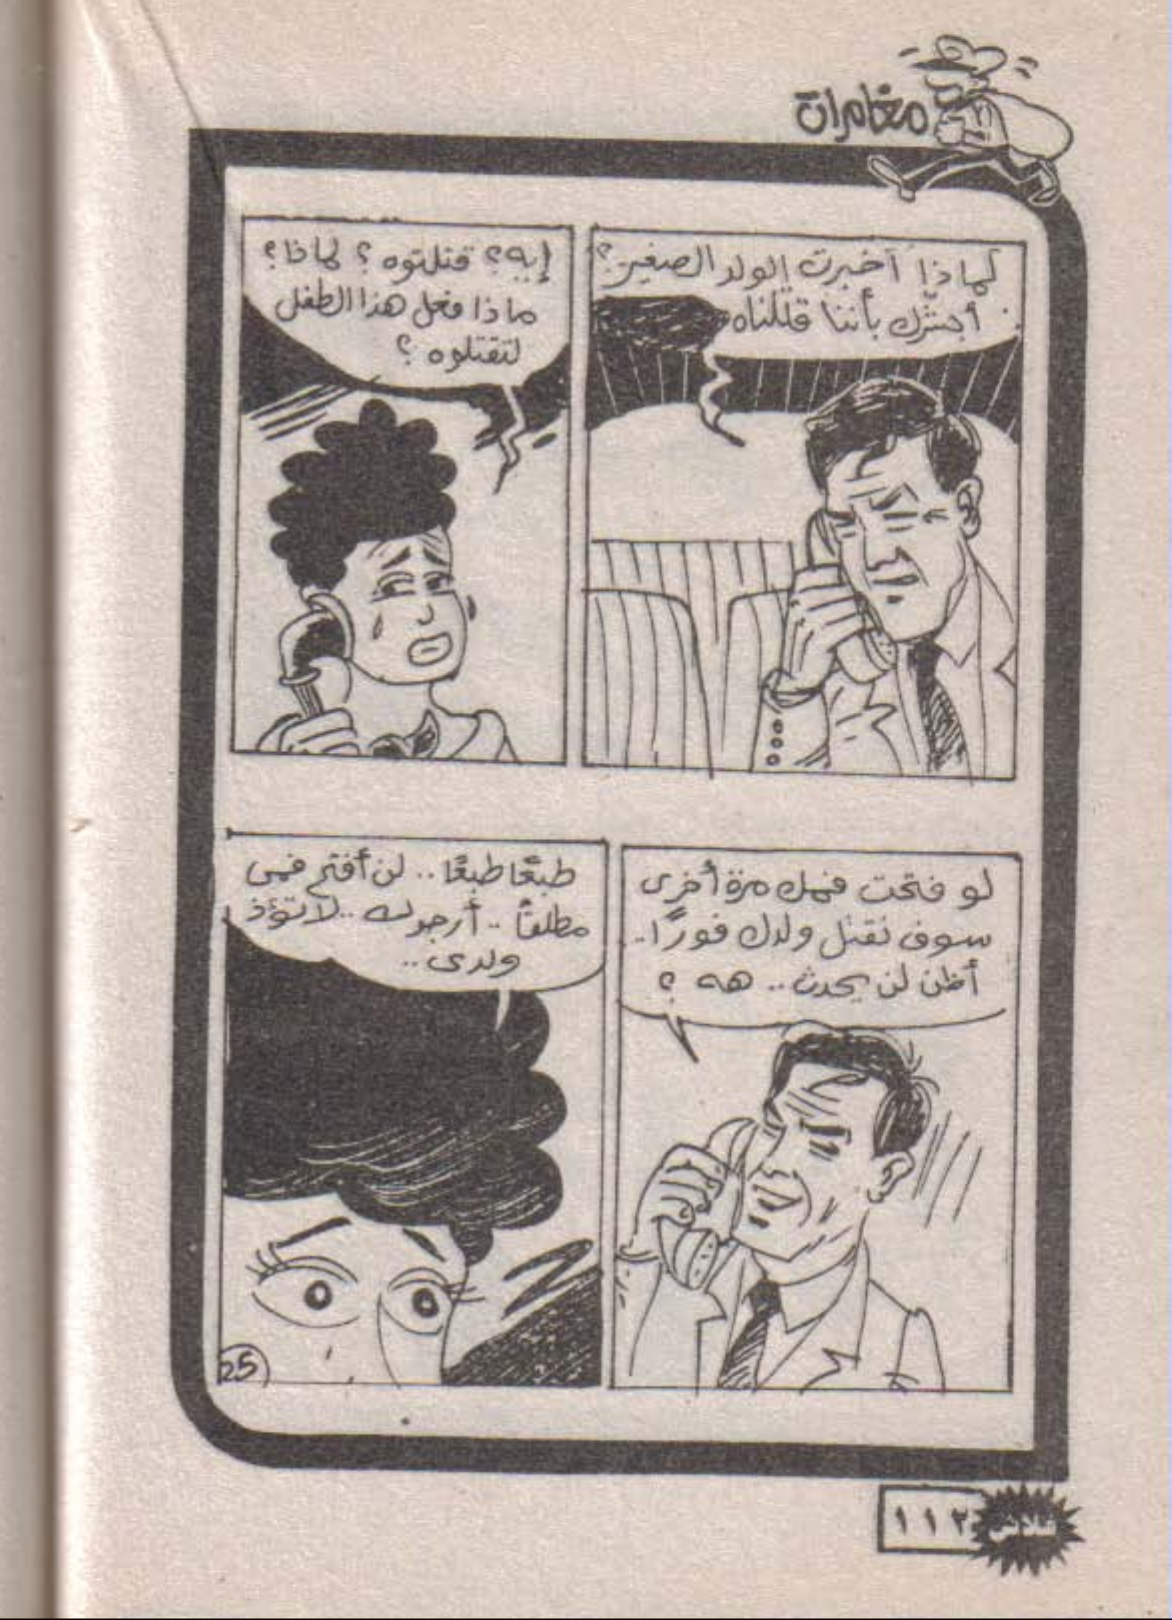 مغامرات
لماذا أخبرت الولد الصغير؟
أبشّرك بأننا قتلناه
إيه؟ قتلتوه؟ لماذا؟
ماذا فعل هذا الطفل
لتقتلوه؟
لو فتحت فمك مرة أخرى
سوف نقتل ولدك فورًا..
أظن لن يحدث.. هه؟
طبعًا طبعًا.. لن أفتح فمى
مطلقًا.. أرجوك.. لا تؤذ
ولدى..
25
فلاش ١١٣